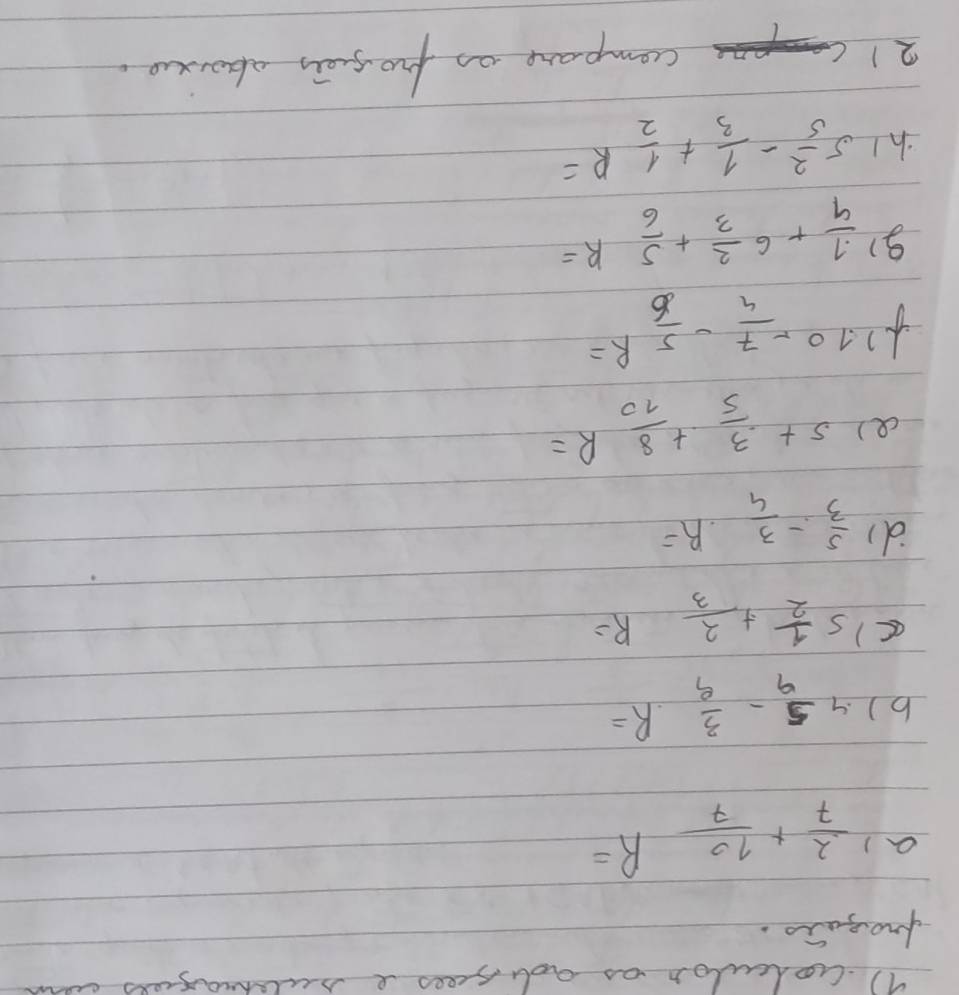 1) Calcular as adições e subtrações com
frações.
a) 2/7 + 10/7 R=
b) 4 5/9 - 3/9 R=
c) 5 1/2 + 2/3 R=
d) 5/3 - 3/4 R=
e) 5 + 3/5 + 8/10 R=
f) 10 - 7/4 - 5/6 R=
g) 1/4 + 6 2/3 + 5/6 R=
h) 5 2/5 - 1/3 + 1/2 R=
2) compare as frações abaixo.